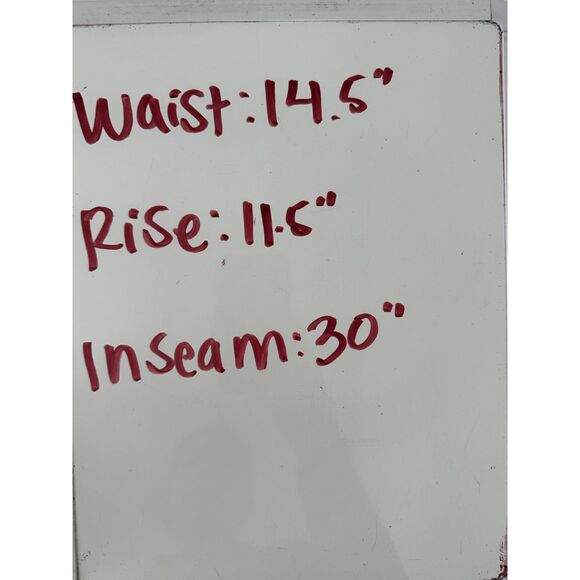 Waist: 14.5"
Rise: 11.5"
Inseam: 30"